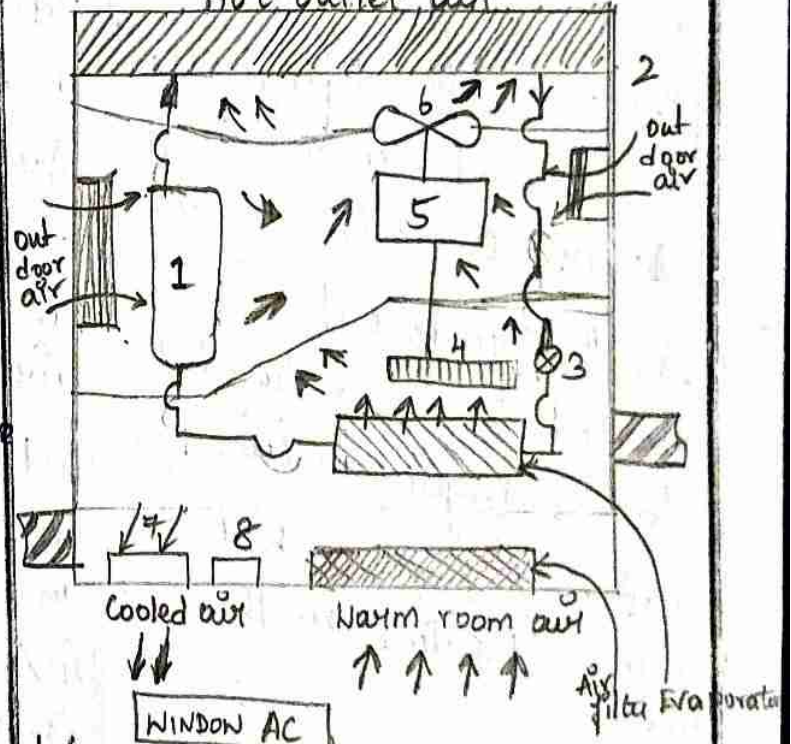 Hot outlet air
2
6
out
door
air
5
1
out
door
air
4
3
7
8
Cooled air
Warm room air
Air
filter
Evaporator
WINDOW AC